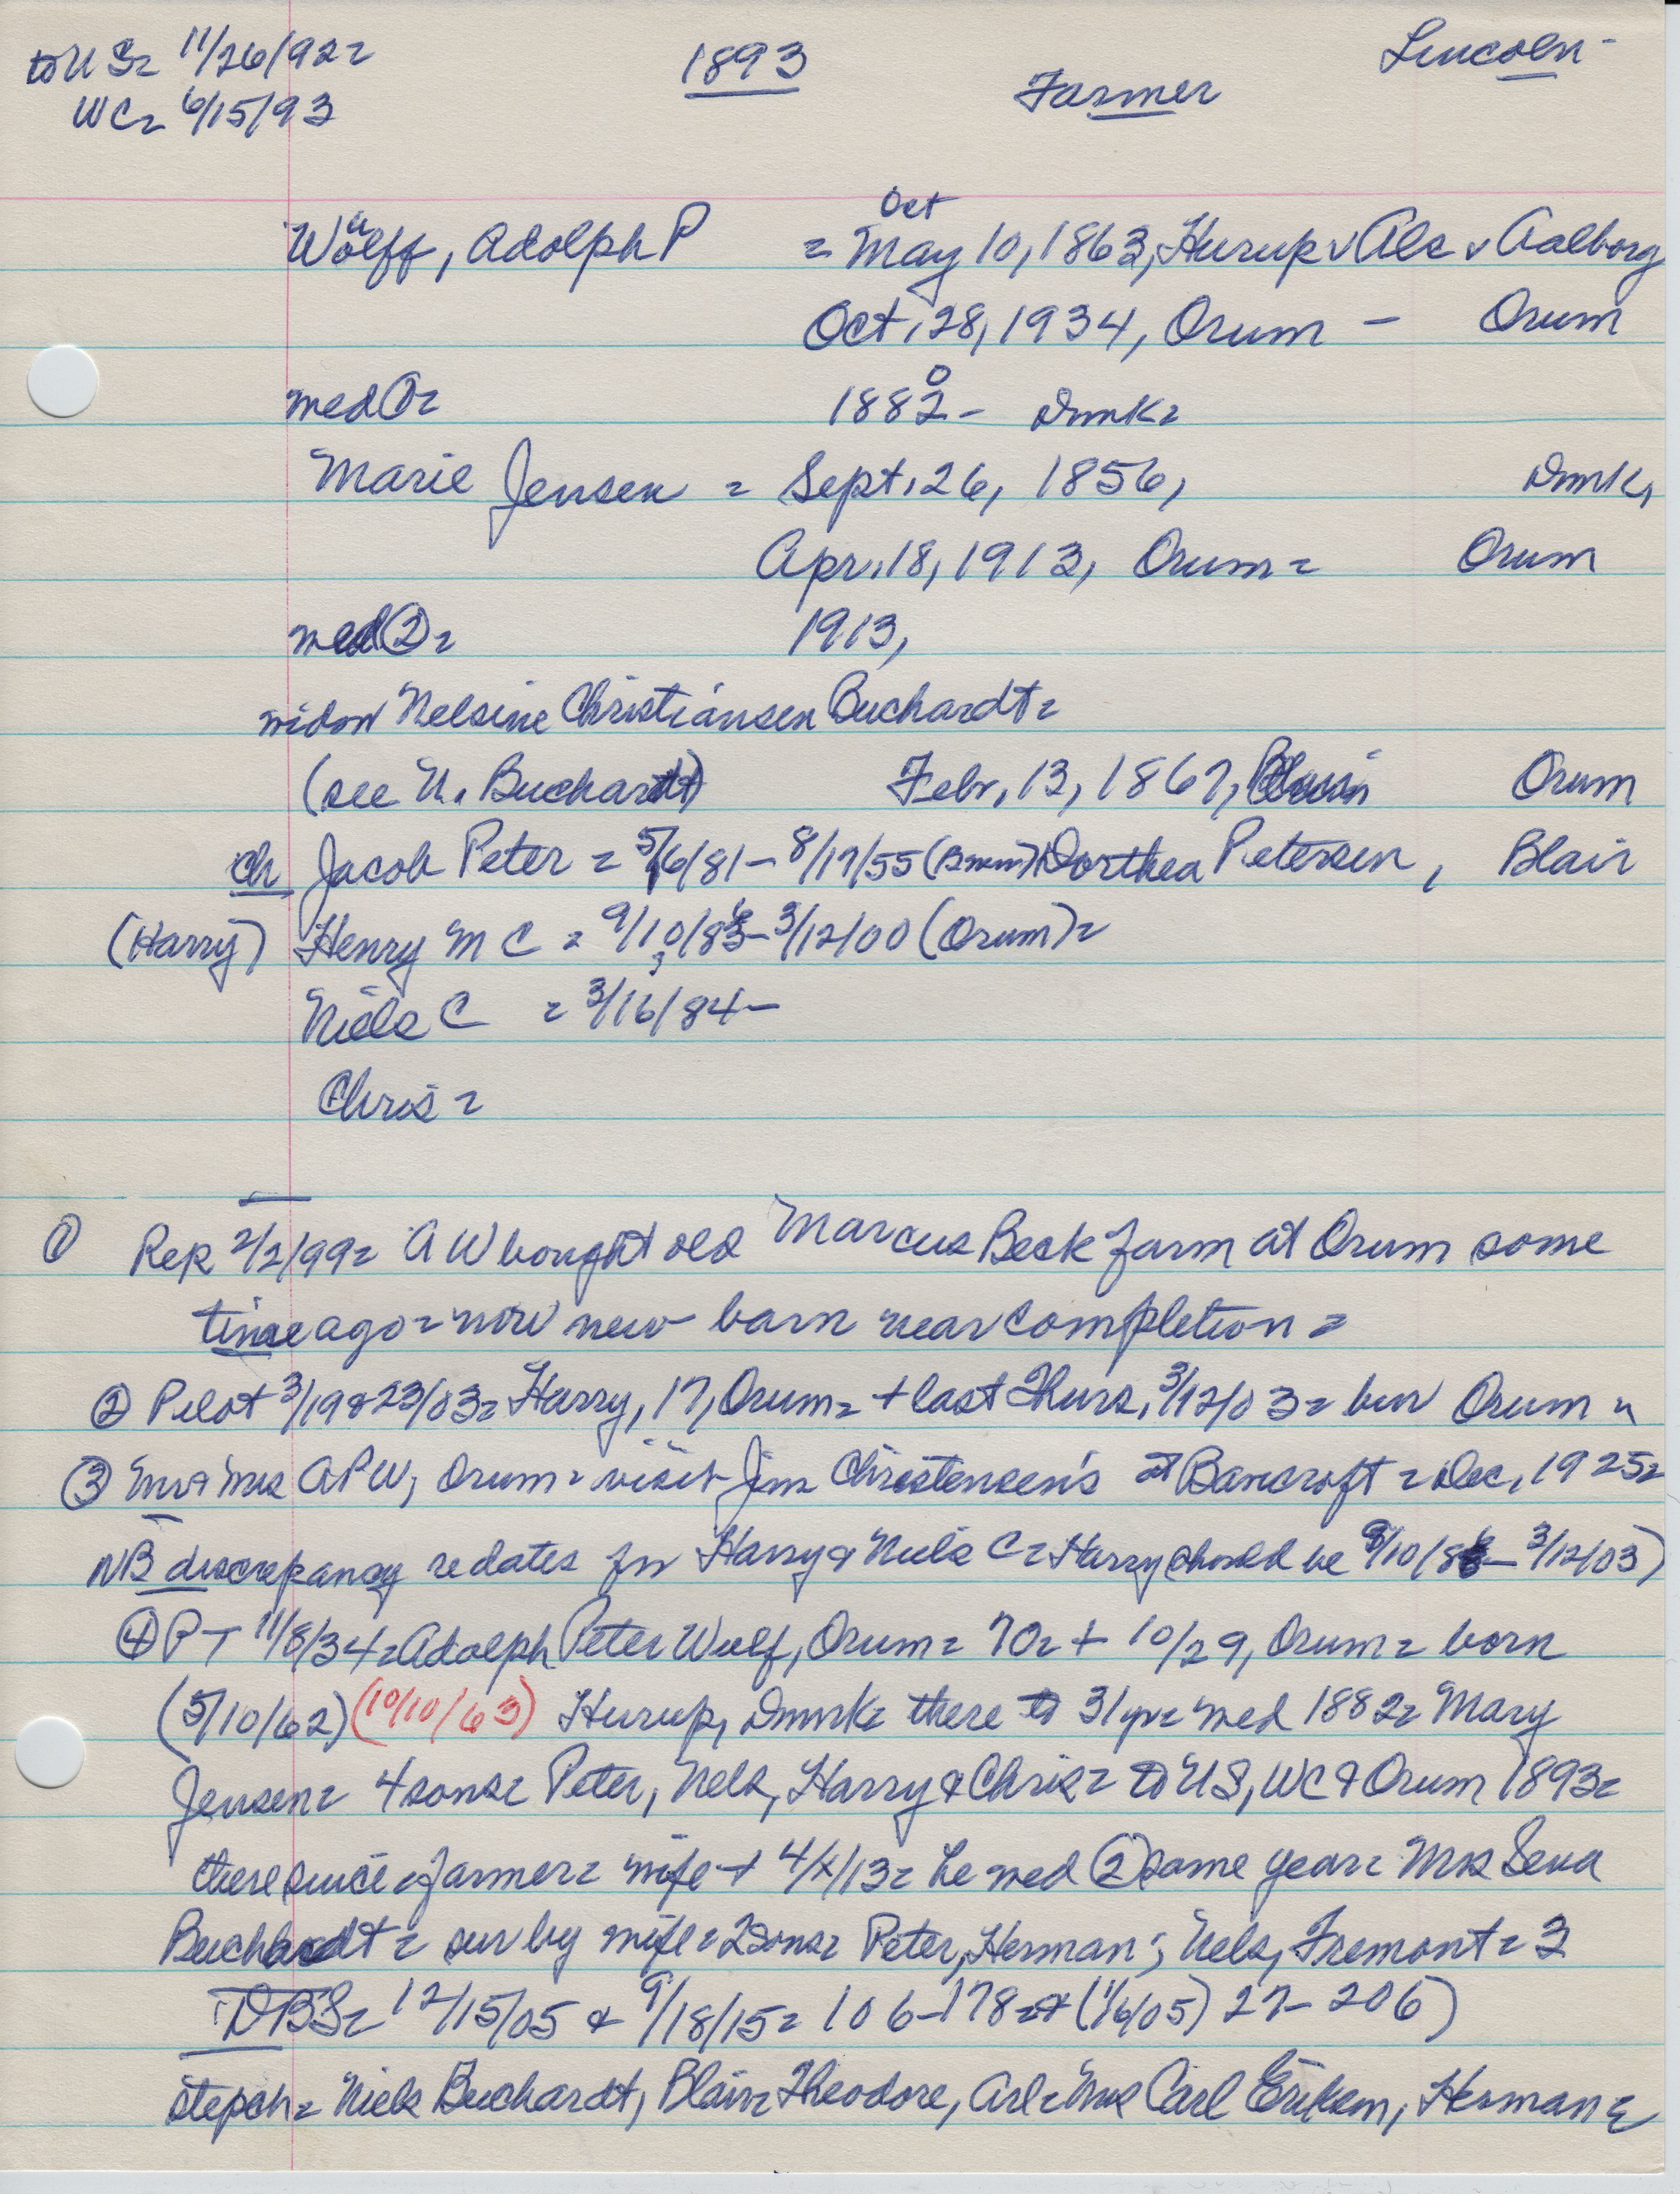 to US= 11/26/92= 1893 Farmer Lincoln-
WC= 6/15/93
Oct
Wolff, Adolph P = May 10, 1863, Hurup v Als v Aalborg
u
Oct. 28, 1934, Orum - Orum
med ①= 1882 - Dmk=
0
Marie Jensen = Sept. 26, 1856, Dmk,
Apr. 18, 1913, Orum= Orum
med ②= 1913,
widow Nelsine Christiansen Buchardt=
(see N. Buchardt) Febr. 13, 1867, Orum
ch Jacob Peter = 5/6/81 - 8/17/55 Dorthea Petersen, Blair
(Harry) Henry M C = 9/10/83 - 3/12/00 (Orum)=
6
3
Niels C = 3/16/84 -
Chris =
① Rep 2/2/99= A W bought old Marcus Beck farm at Orum some
time ago= now new barn near completion=
② Pilot 3/19&23/03= Harry, 17, Orum= + last Thurs. 3/12/03= bur Orum=
③ Mr & Mrs APW, Orum= visit Jim Christensen's at Bancroft= Dec. 1925=
NB discrepancy re dates for Harry & Niels C= Harry should be 9/10/86 - 3/12/03)
④ PT 11/8/34= Adolph Peter Wulf, Orum= 70= + 10/29, Orum= born
(5/10/62) (10/10/63) Hurup, Dmrk= there to 31 yr= med 1882= Mary
Jensen= 4 sons= Peter, Nels, Harry & Chris= to US, WC & Orum 1893=
there since= farmer= wife + 4/x/13= he med ② same year= Mrs Sena
Buchardt= sur by wife= 2 sons= Peter, Herman; Nels, Fremont= 3
DBS= 12/15/05 & 9/18/15= 106-178= & (1/6/05) 27-206)
stepch= Niels Buchardt, Blair= Theodore, Arl= Mrs Carl Eriksen, Herman=